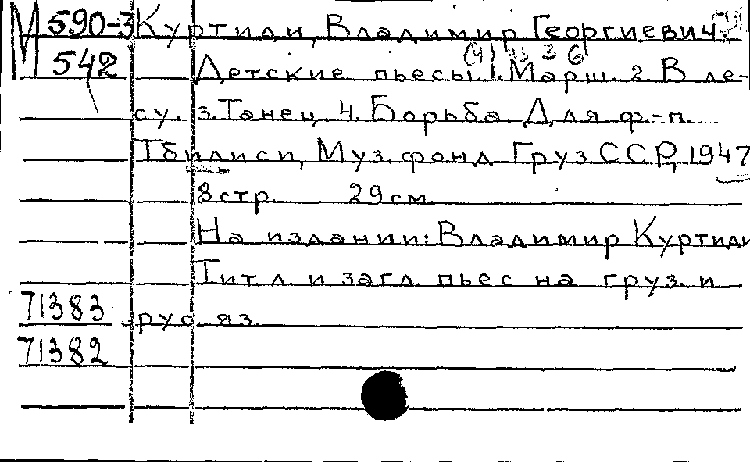 М 590-3 Куртиди, Владимир Георгиевич.
542 Детские пьесы. (4) 1. Марш. 2. В ле-
су. 3. Танец. 4. Борьба. Для ф.-п.
Тбилиси, Муз. фонд Груз ССР, 1947
8 стр. 29 см.
На издании: Владимир Куртиди
Тит. л. и загл. пьес на груз. и
71383 рус. яз.
71382